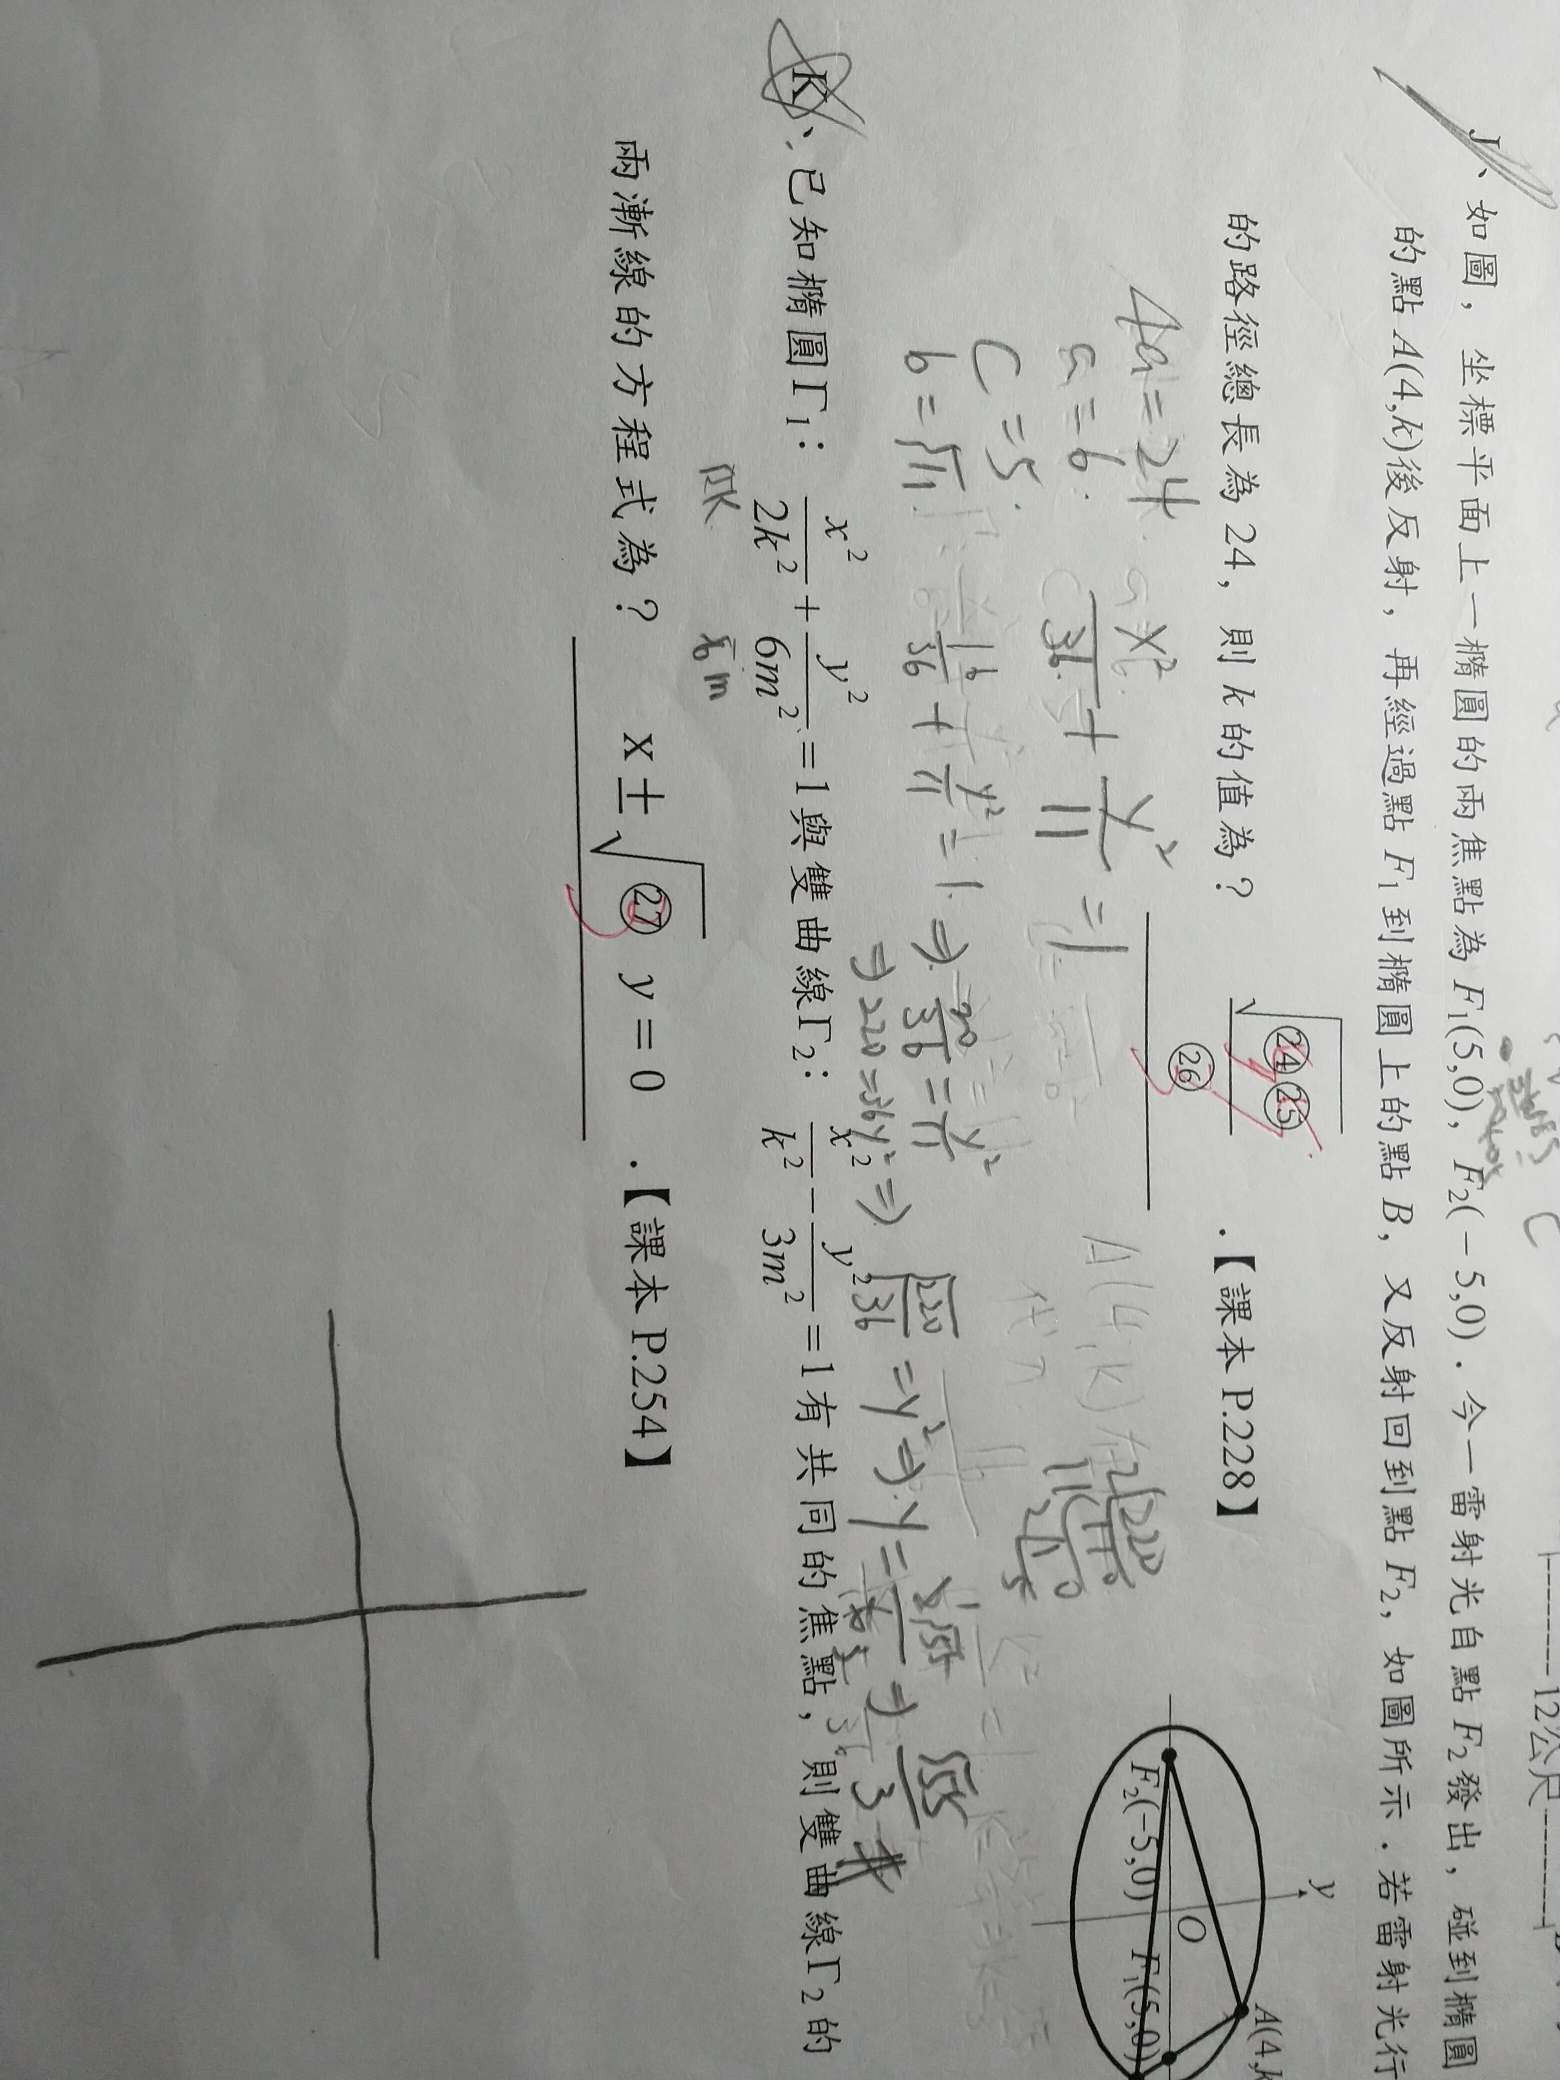 12公尺
J、如圖，坐標平面上一橢圓的兩焦點為 F₁(5,0)，F₂(−5,0)．今一雷射光自點 F₂ 發出，碰到橢圓
的點 A(4,k)後反射，再經過點 F₁ 到橢圓上的點 B，又反射回到點 F₂，如圖所示．若雷射光行
的路徑總長為 24，則 k 的值為？ √㉔㉕/㉖ ．【課本 P.228】
4a=24
a=6
c=5
b=√11
x²/36 + y²/11 = 1
A(4,k)
16/36 + y²/11 = 1 ⇒ 20/36 = y²/11
⇒ 220=36y² ⇒ 220/36 = y² ⇒ y = ⇒ √55/3
y
O
A(4,k
F₂(−5,0)
F₁(5,0)
K、已知橢圓Γ₁：x²/2k² + y²/6m² = 1與雙曲線Γ₂：x²/k² − y²/3m² = 1有共同的焦點，則雙曲線Γ₂的
兩漸線的方程式為？ x±√㉗ y = 0 ．【課本 P.254】